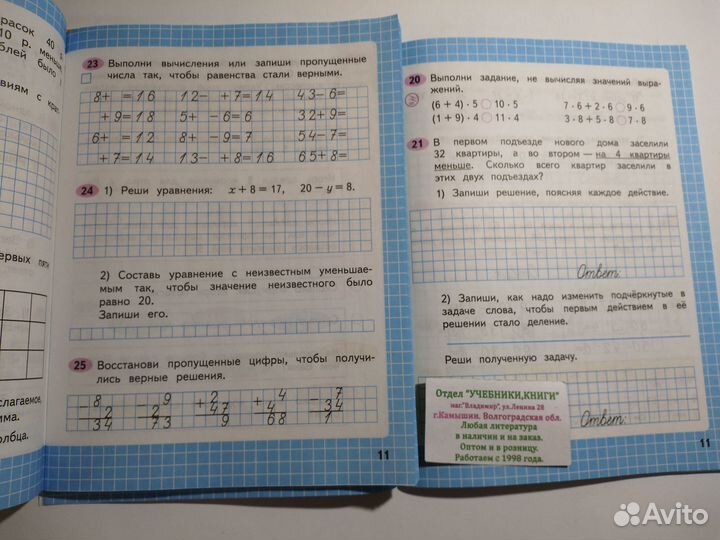 расок 40
10 р. меньш
блей было
виям с крат
ервых пяти
слагаемое,
има.
олбца.
23 Выполни вычисления или запиши пропущенные
числа так, чтобы равенства стали верными.
8+ =16 12- +7=14 43-6=
+9=18 5+ -6=6 32+9=
6+ =12 8+ -9=7 54-7=
+7=14 13- +8=16 65+8=
24 1) Реши уравнения: x+8=17, 20-y=8.
2) Составь уравнение с неизвестным уменьшае-
мым так, чтобы значение неизвестного было
равно 20.
Запиши его.
25 Восстанови пропущенные цифры, чтобы получи-
лись верные решения.
-8 - 9 +2 + 4 - 7
2 2 47 4 34
34 73 9 68 1
11
20 Выполни задание, не вычисляя значений выра-
жений.
(6 + 4) · 5 10 · 5 7 · 6 + 2 · 6 9 · 6
(1 + 9) · 4 11 · 4 3 · 8 + 5 · 8 7 · 8
21 В первом подъезде нового дома заселили
32 квартиры, а во втором — на 4 квартиры
меньше. Сколько всего квартир заселили в
этих двух подъездах?
1) Запиши решение, поясняя каждое действие.
Ответ:
2) Запиши, как надо изменить подчёркнутые в
задаче слова, чтобы первым действием в её
решении стало деление.
Реши полученную задачу.
Ответ:
11
Отдел "УЧЕБНИКИ,КНИГИ"
маг."Владимир", ул.Ленина 28
г.Камышин. Волгоградская обл.
Любая литература
в наличии и на заказ.
Оптом и в розницу.
Работаем с 1998 года.
Avito